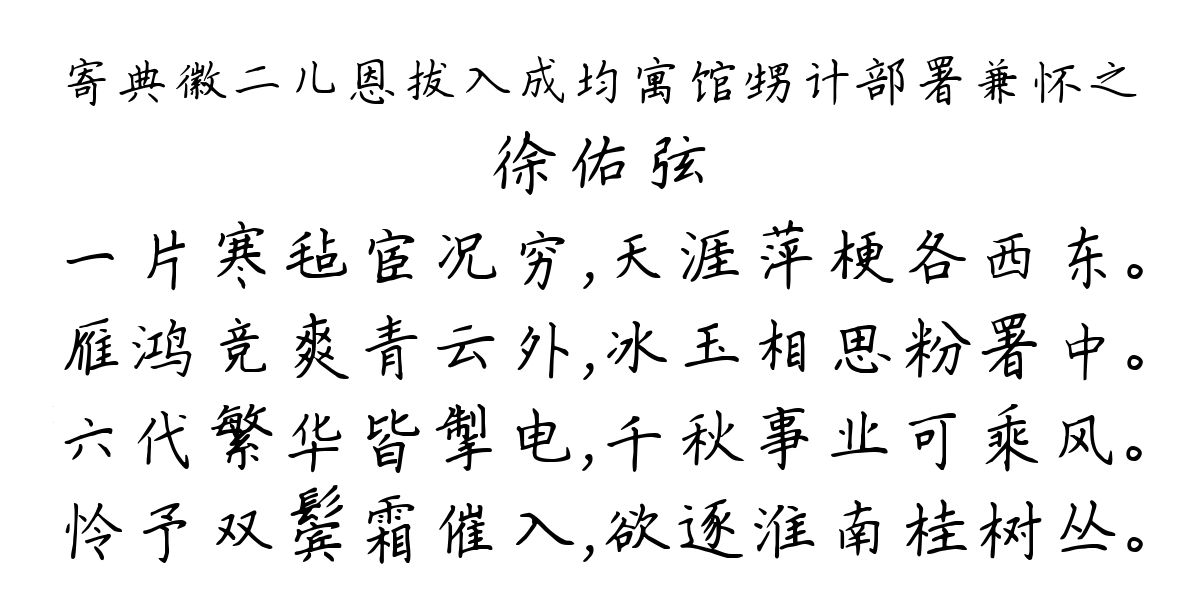 寄典徽二儿恩拔入成均寓馆甥计部署兼怀之
徐佑弦
一片寒毡宦况穷,天涯萍梗各西东。
雁鸿竞爽青云外,冰玉相思粉署中。
六代繁华皆掣电,千秋事业可乘风。
怜予双鬓霜催入,欲逐淮南桂树丛。